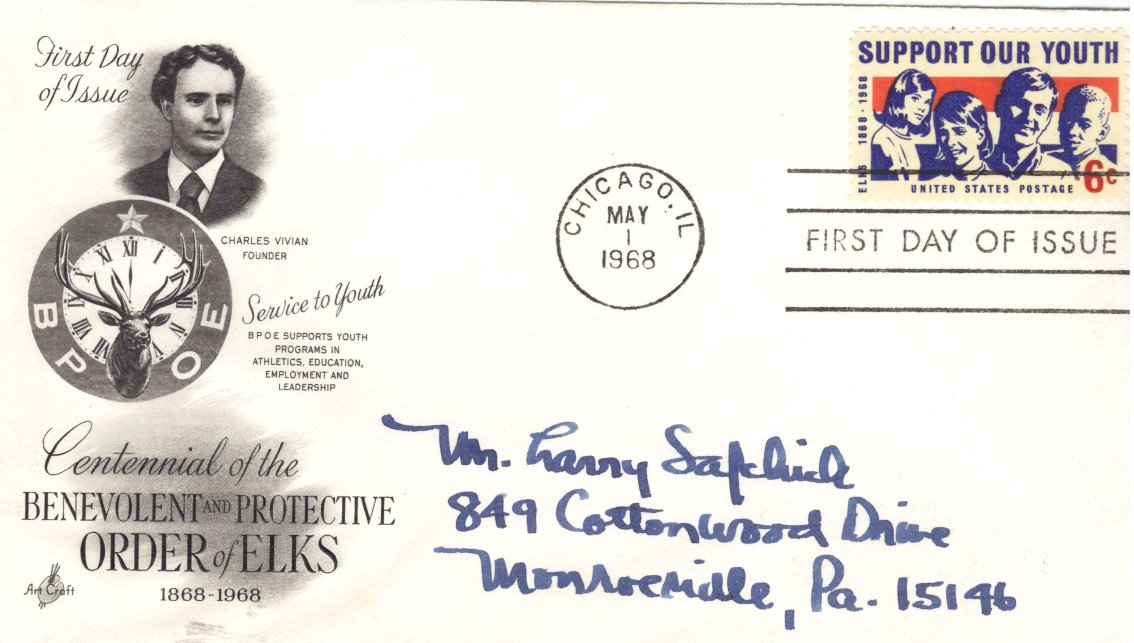 First Day
of Issue
CHARLES VIVIAN
FOUNDER
B P O E
Service to Youth
B P O E SUPPORTS YOUTH
PROGRAMS IN
ATHLETICS, EDUCATION,
EMPLOYMENT AND
LEADERSHIP
Centennial of the
BENEVOLENT AND PROTECTIVE
ORDER of ELKS
1868-1968
Art Craft
CHICAGO, IL
MAY
1
1968
SUPPORT OUR YOUTH
ELKS 1868·1968
UNITED STATES POSTAGE 6c
FIRST DAY OF ISSUE
Mr. Larry
849 Cottonwood Drive
Monroeville, Pa. 15146